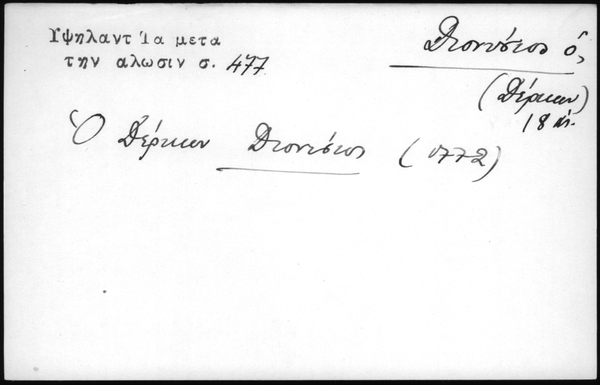 Υψηλαντ Ἰα μετα
την αλωσιν σ. 477
Διονύσιος ὁ,
(Δέρκων)
18 αἰ.
Ὁ Δέρκων Διονύσιος (1772)